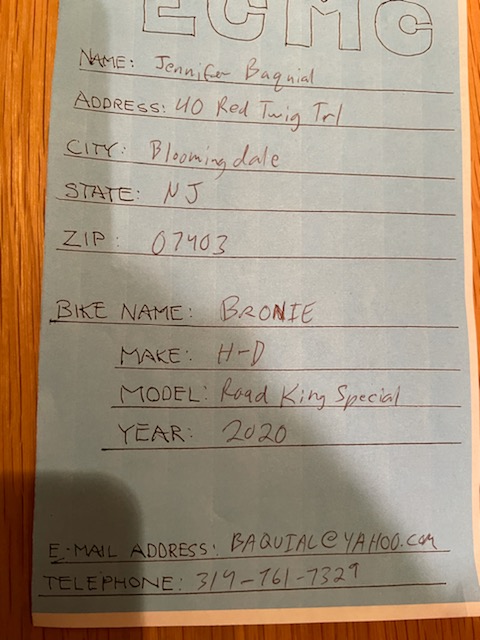 ECMC
NAME: Jennifer Baquial
ADDRESS: 40 Red Twig Trl
CITY: Bloomingdale
STATE: NJ
ZIP: 07403
BIKE NAME: BRONIE
MAKE: H-D
MODEL: Road King Special
YEAR: 2020
E-MAIL ADDRESS: BAQUIAL@YAHOO.com
TELEPHONE: 319-761-7329